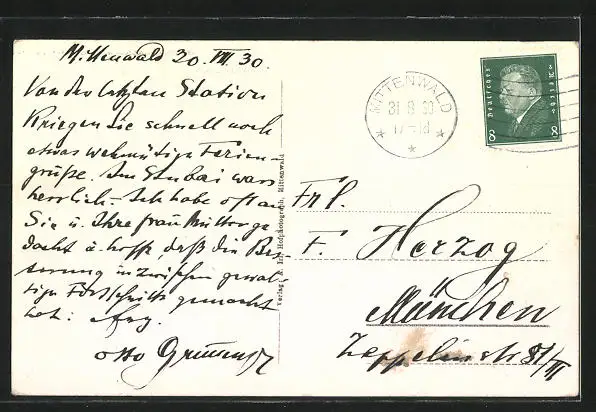 Mittenwald 20. VIII. 30.
Von der letzten Station
kriegen Sie schnell noch
etwas wehmütige Ferien-
grüße. Im Stubai wars
herrlich. – Ich habe oft an
Sie u. Ihre Frau Mutter ge
dacht u. hoffe, daß die Bes-
serung inzwischen gewal-
tige Fortschritte gemacht
hat.
Otto
Verlag
Hofphotograph, Mittenwald
MITTENWALD
31 8 30
17-18
Deutsches Reich
8 8
Frl.
F. Herzog
München
Zeppelinstr 81/III